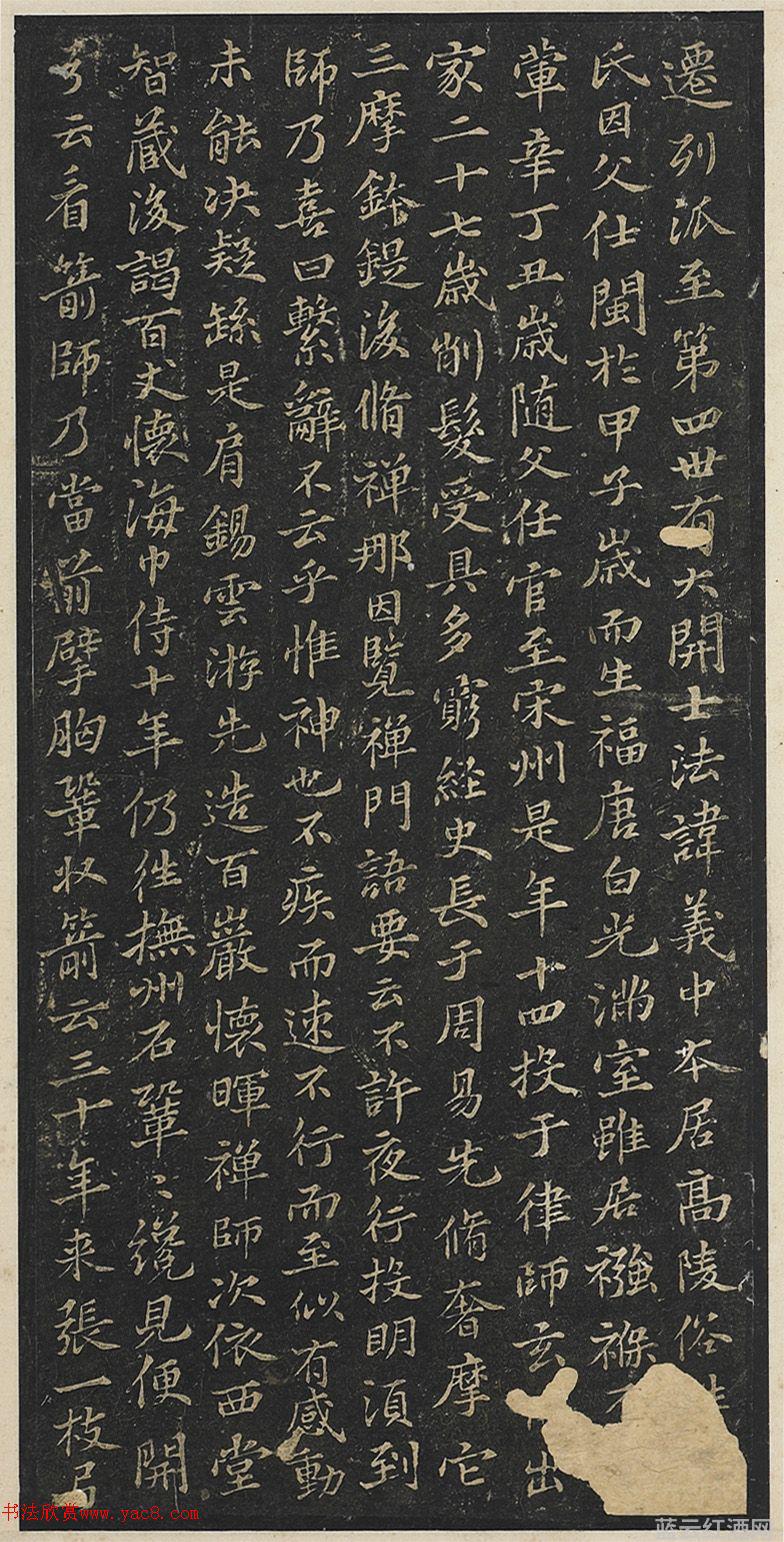 遷列派至第四世有大開士法諱義中本居高陵俗
氏因父仕閩於甲子歲而生福唐白光滿室雖居襁褓
葷辛丁丑歲随父任官至宋州是年十四投于律師玄出
家二十七歲削髮受具多窮經史長于周易先脩奢摩它
三摩鉢鍉後脩禅那因覽禅門語要云不許夜行投明須到
師乃喜曰繫辭不云乎惟神也不疾而速不行而至似有感動
未能决疑繇是肩錫雲游先造百巖懷暉禅師次依西堂
智蔵後謁百丈懷海巾侍十年仍往撫州石鞏〻纔見便開
弓云看箭師乃當前擘胸鞏收箭云三十年来張一枝弓
书法欣赏www.yac8.com
蓝云红酒网